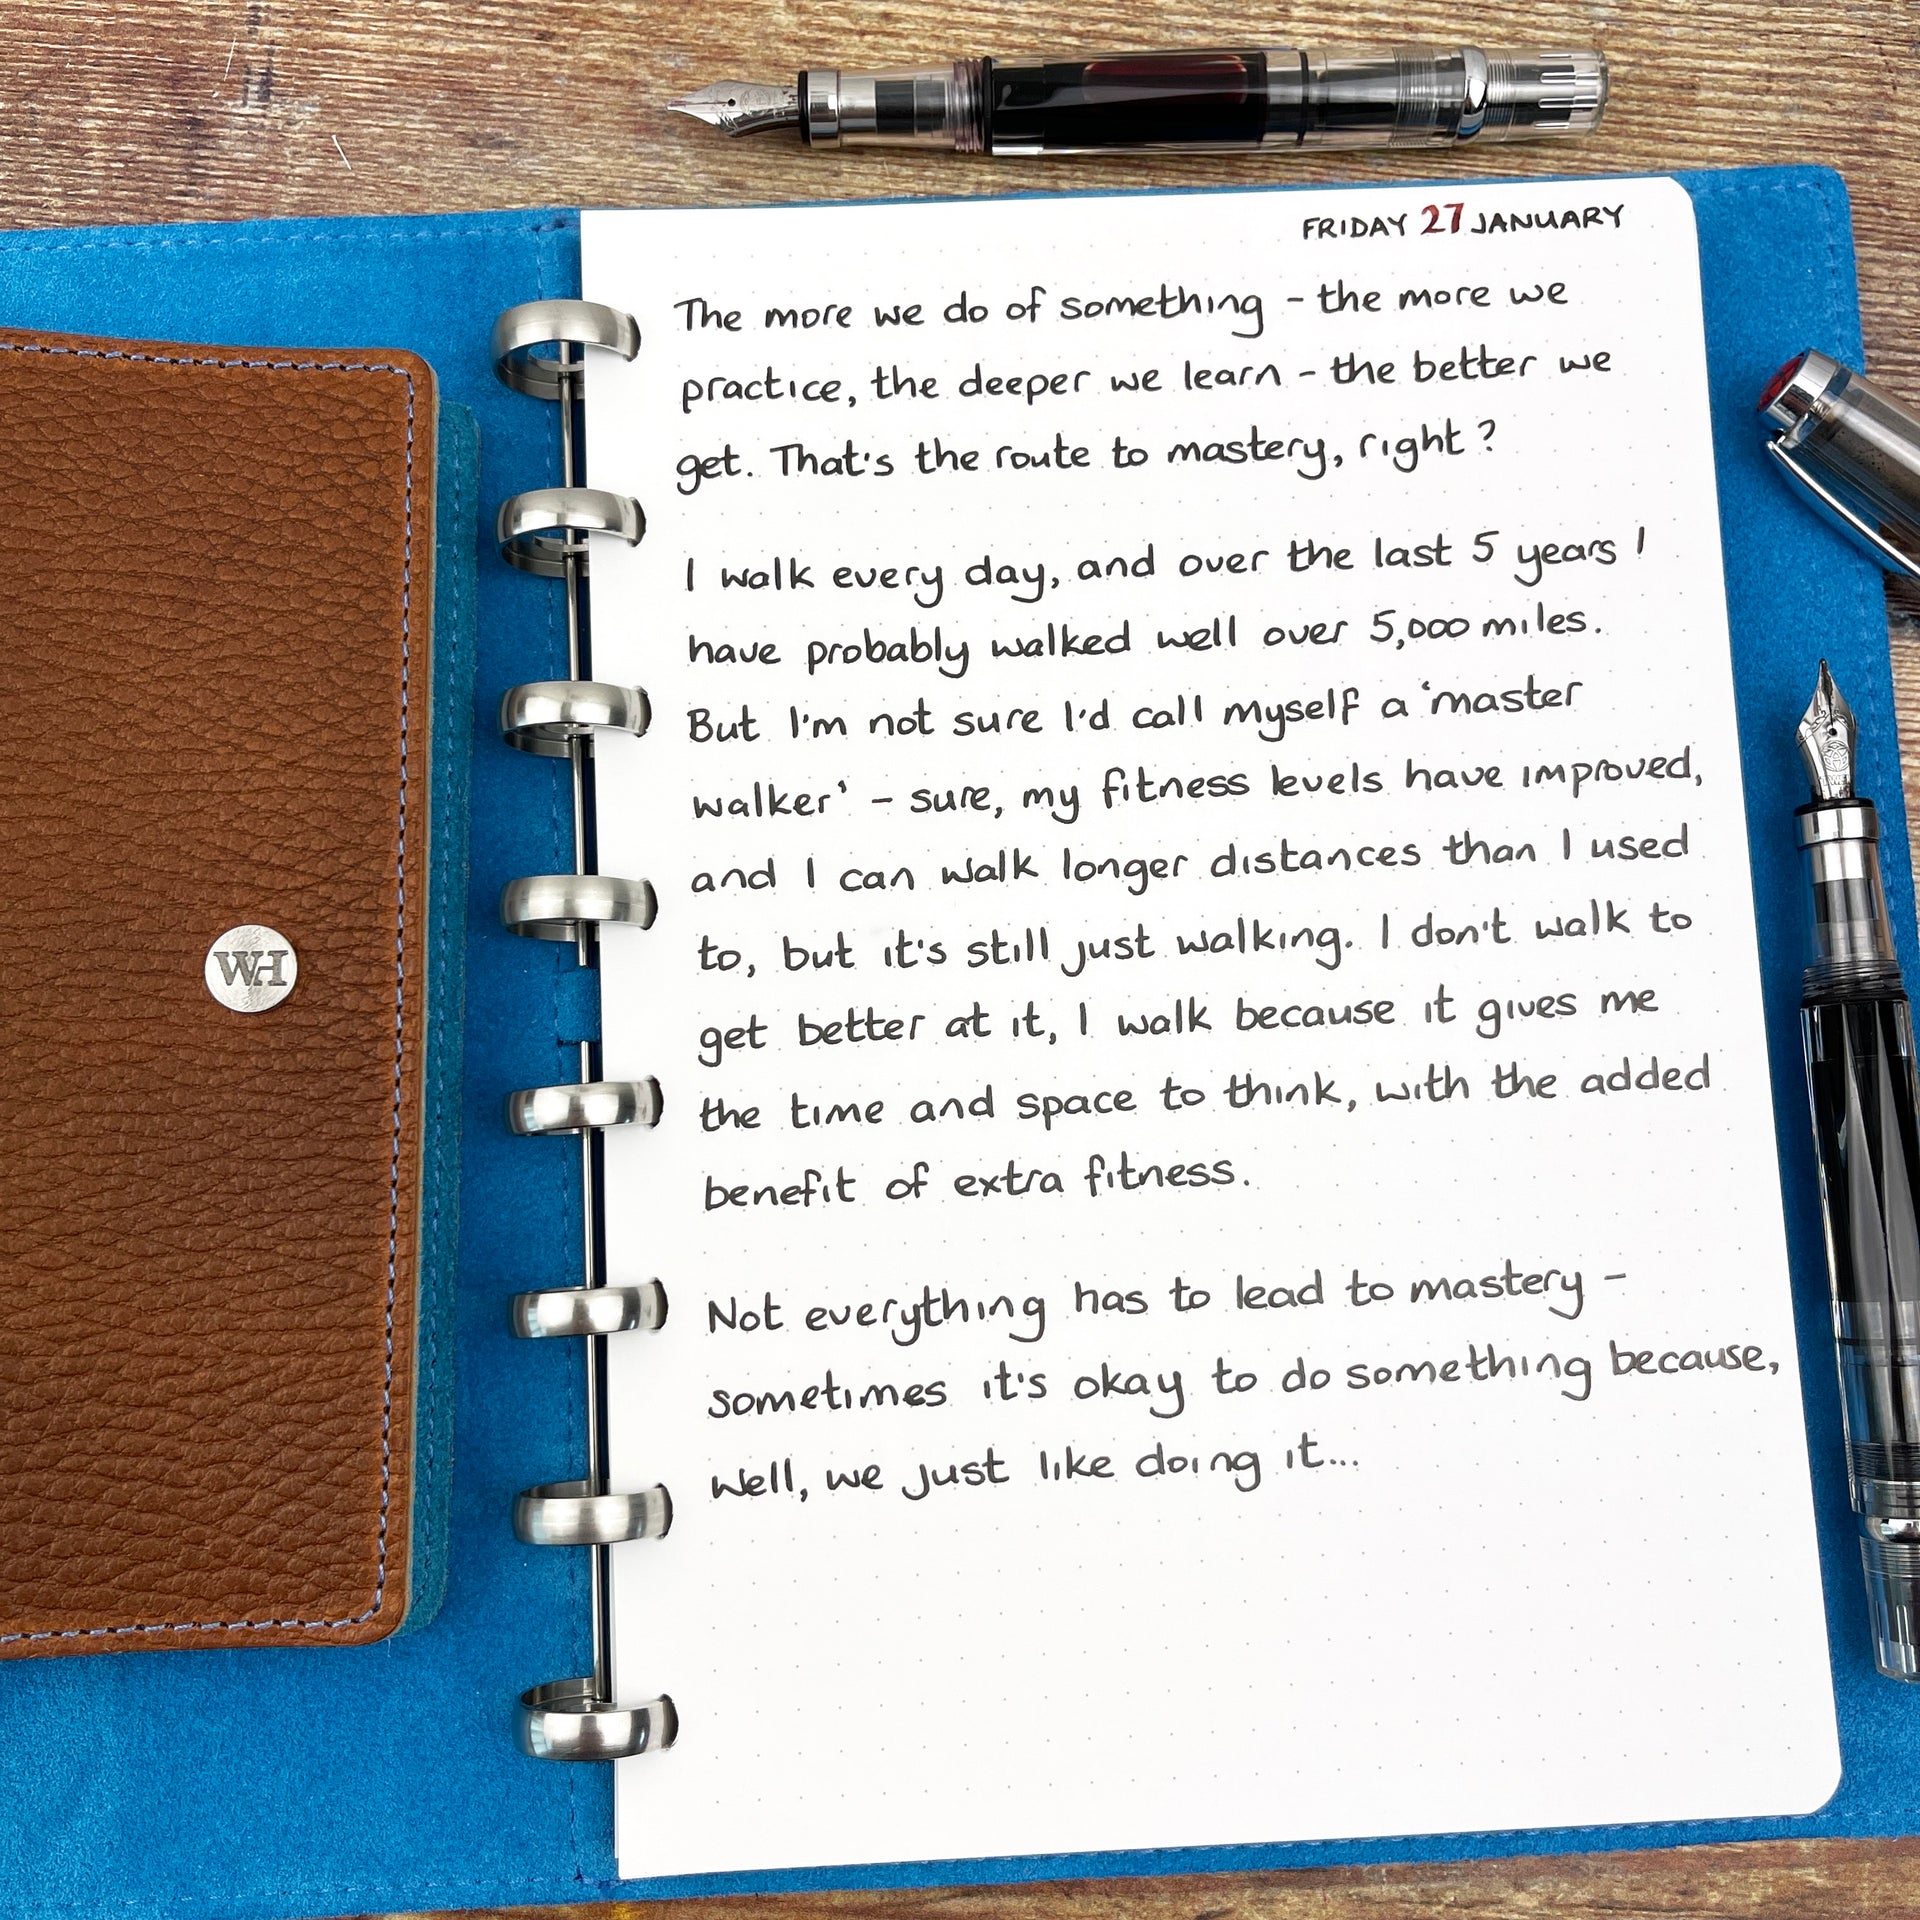 FRIDAY 27 JANUARY
The more we do of something - the more we
practice, the deeper we learn - the better we
get. That's the route to mastery, right?
I walk every day, and over the last 5 years I
have probably walked well over 5,000 miles.
But I'm not sure I'd call myself a 'master
walker' - sure, my fitness levels have improved,
and I can walk longer distances than I used
to, but it's still just walking. I don't walk to
get better at it, I walk because it gives me
the time and space to think, with the added
benefit of extra fitness.
Not everything has to lead to mastery -
sometimes it's okay to do something because,
well, we just like doing it...
WH